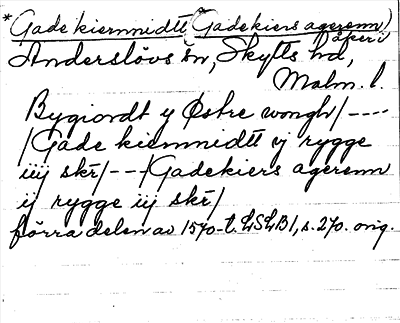 *Gade kiernnidtt (Gadekiers agerenn)
åker i
Anderslövs sn, Skytts hd,
Malm. l.
Bygiordt y Østre wongh/----
/Gade kiernnidtt ij rygge
iiij skr/---/Gadekiers agerenn
ij rygge iij skr/
förra delen av 1570-t. LSLB1, s. 270. orig.